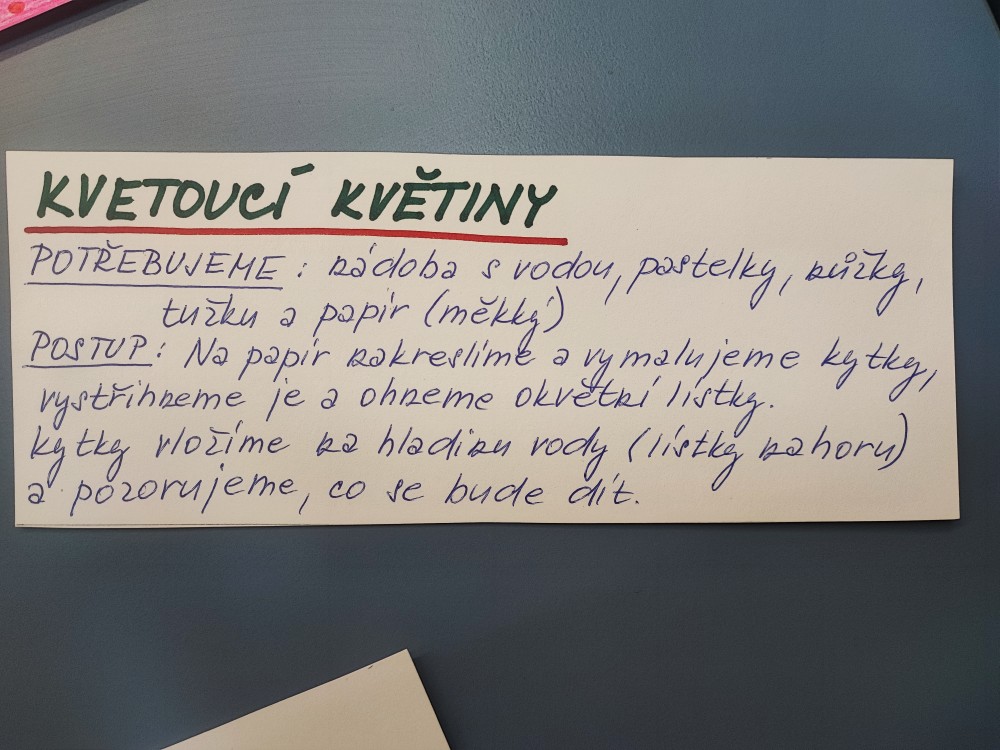 KVETOUCÍ KVĚTINY
POTŘEBUJEME: nádoba s vodou, pastelky, nůžky,
tužku a papír (měkký)
POSTUP: Na papír nakreslíme a vymalujeme kytky,
vystřihneme je a ohneme okvětní lístky.
kytky vložíme na hladinu vody (lístky nahoru)
a pozorujeme, co se bude dít.